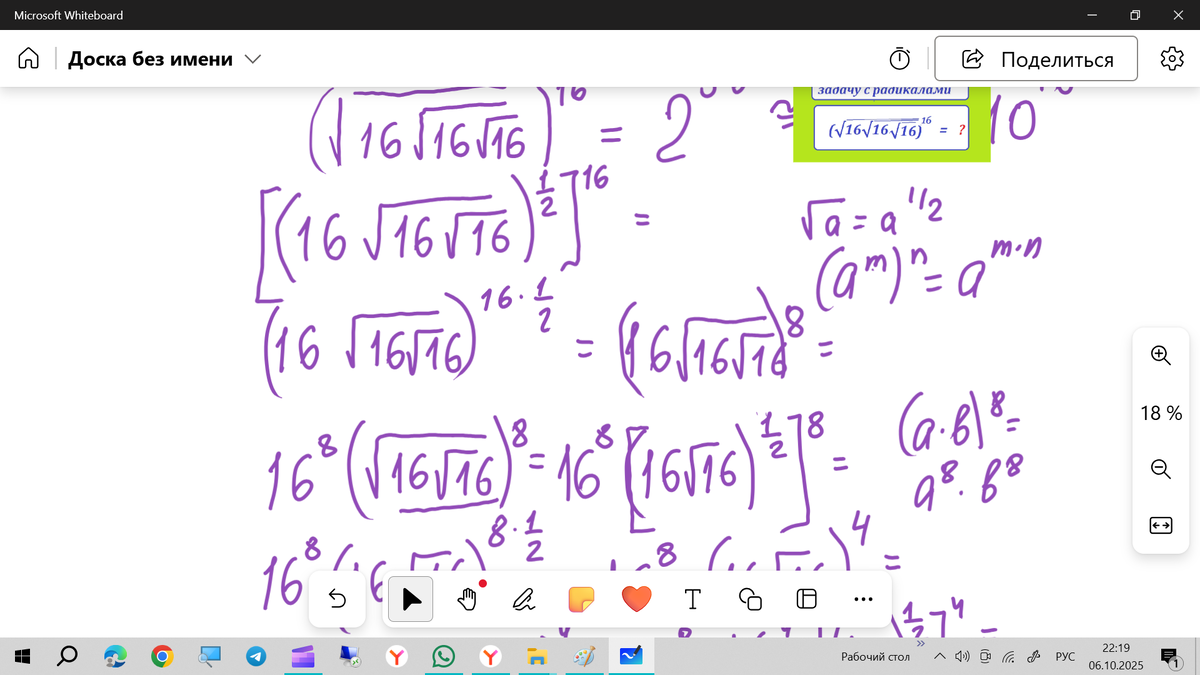 Microsoft Whiteboard
Доска без имени
Поделиться
задачу с радикалами
(√16√16√16)^16 = ?
(√16√16√16)^16 = 2
≅
10
[(16√16√16)^1/2]^16 =
√a = a^1/2
(a^m)^n = a^m·n
(16√16√16)^16·1/2 = (16√16√16)^8 =
18 %
16^8(√16√16)^8 = 16^8[(16√16)^1/2]^8 =
(a·b)^8 =
a^8·b^8
16^8
8·1/2
8
4
=
T
1/2]^4 =
Рабочий стол
РУС
22:19
06.10.2025
1